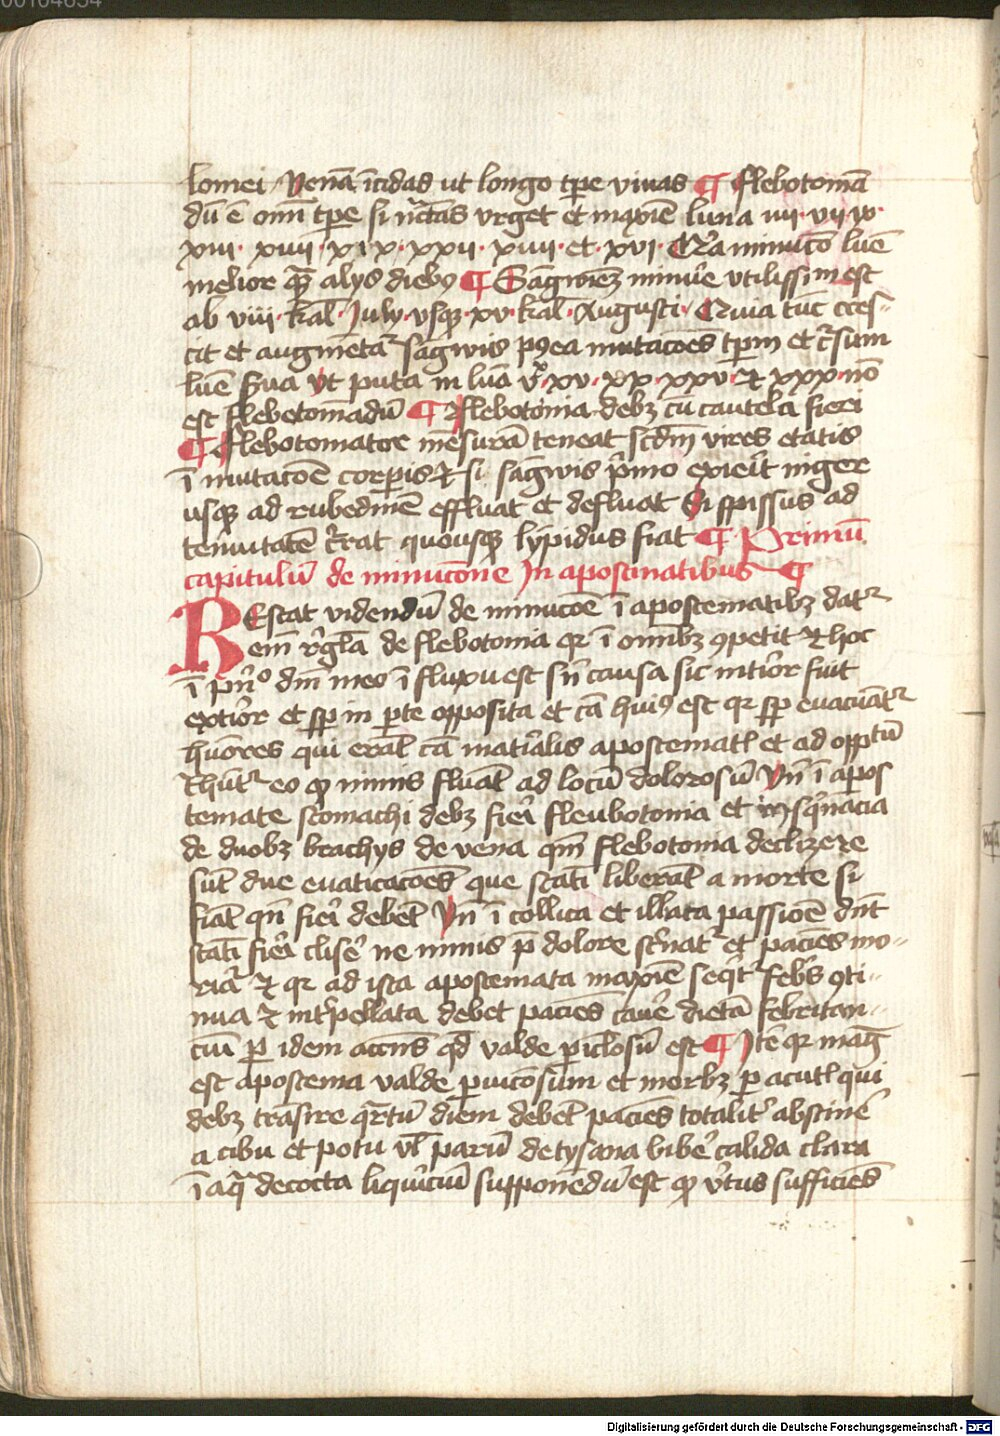 00104654
lomei Venā īcidas ut longo tꝑe viuas ¶ flebotomā
dū ē om̄i tꝑe si nc̄itas vrget et maxīe luna iiii · vii · ix ·
xiii · xiiii · xix · xxii · xiiii · et · xvi · minucō luē
melior q̄ alys diebꝰ ¶ Sāgwinēꝫ minuē vtilissim est
ab viii · kal̄ · July · vsqꝫ · xv · kal̄ · Augusti · Quia tūc cres-
cit et augmētaꝛ sāgwis ꝓꝑea mutacōes tꝑm et cursum
lūe sua vt puta in lūa v · xv · xx · xxv · ⁊ xxx · nō
est flebotomādū ¶ flebotomia debꝫ cū cautela fieri
¶ flebotomatore mēsurā teneat scd̄m vires etatis
ī mutacōe corꝑis ⁊ si sāgwis p̄mo exierit niger
usqꝫ ad rubedinē effluat et defluat Si spissus ad
tenuitatē quousqꝫ lypidus fiat ¶ Primū
capitulū de minucōne In apostmatibus ¶
REstat videndū de minucōe ī apostematibꝫ datꝛ
em̄ rḡla de flebotomia qꝛ ī om̄ibꝫ ꝯpetit ⁊ hoc
ī pn̄º dm̄ meo ī fluxu est sn̄ causa sic īntior fuit
extior et sꝑ in ꝑte opposita et cā huiꝰ est qꝛ sꝑ euacuātꝛ
huōres qui erāt cā mat̄ialis apostemat̄ et ad opptū
eo ꝙ nimis fluāt ad locū dolorosū Vn̄ ī apos
temate stomachi debꝫ fieri fleubotomia et insq̄nācia
de duobꝫ brachys de vena qm̄ flebotomia
sūt due euaticacōes que statī liberāt a morte si
fiāt qn̄ fieri debēt Vn̄ ī collica et illiata passiōe dn̄t
statī fieri clisē ne nimis p̄ dolore et paciēs mo-
riāꝛ ⁊ qꝛ ad ista apostemata maxīe seq̄tꝛ febris ꝯti-
nua ⁊ int̄pellata debet paciēs cauē dietā febritan-
ciū ꝑ idem accn̄s qd̄ valde ꝑiclosū est ¶ Itē qꝛ mag̅
est apostema valde ꝑnicōsum et morbꝫ ꝑ acut̄ qui
debꝫ trāsire q̄rtū diem debēt paciēs totalit̄ abstinē
a cibu et potu vl̄ parū de tysana bibē calida clara
ī aq̄ decocta liquiriciū supponēdū est ꝙ v̄tus sufficiēs
Digitalisierung gefördert durch die Deutsche Forschungsgemeinschaft - DFG